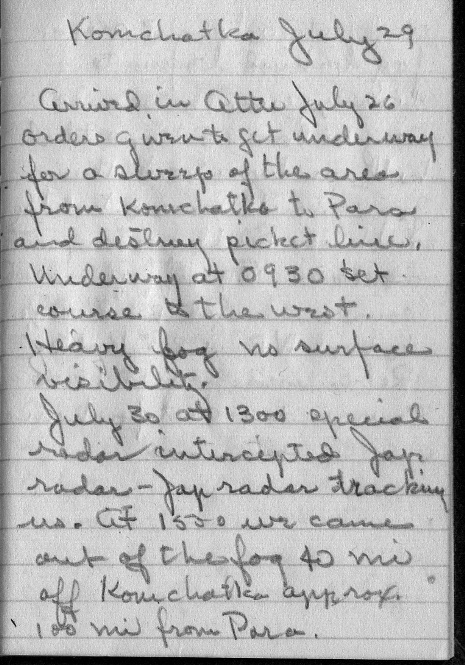 Komchatka July 29
Arrived in Attu July 26
orders given to get underway
for a sweep of the area
from Komchatka to Para
and destroy picket line.
Underway at 0930 set
course to the west.
Heavy fog no surface
visibility.
July 30 at 1300 special
radar intercepted Jap
radar - Jap radar tracking
us. At 1530 we came
out of the fog 40 mi
off Komchatka approx.
100 mi from Para.